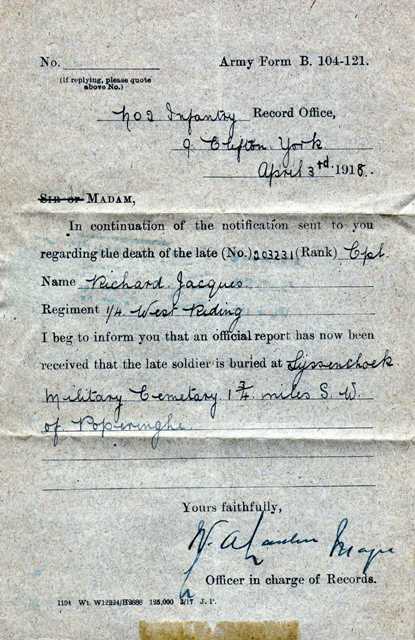 No. Army Form B. 104-121.
(If replying, please quote
above No.)
No 2 Infantry Record Office,
9 Clifton York
April 3rd 1918.
Sir or Madam,
In continuation of the notification sent to you
regarding the death of the late (No.) 203231 (Rank) Cpl.
Name Richard Jacques
Regiment 1/4 West Riding
I beg to inform you that an official report has now been
received that the late soldier is buried at Lyssenthoek
Military Cemetary 1¾ miles S. W.
of Poperinghe
Yours faithfully,
Major
Officer in charge of Records.
1104 Wt. W12224/H2688 125,000 2/17 J. P.